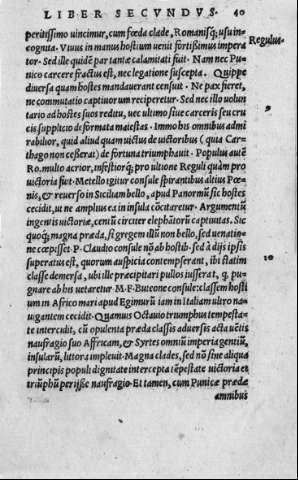 LIBER SECVNDVS. 40
peritissimo uincimur, cum fœda clade, Romanisq; usu in-
cognita. Viuus in manus hostium uenit fortissimus impera Regulus.
tor. Sed ille quidē par tantæ calamitati fuit. Nam nec Pu-
nico carcere fractus est, nec legatione suscepta. Quippe
diuersa quam hostes mandauerant censuit. Ne pax fieret,
ne commutatio captiuorum reciperetur. Sed nec illo uolun
tario ad hostes suos reditu, nec ultimo siue carceris seu cru
cis supplicio deformata maiestas. Immo his omnibus admi
rabilior, quid aliud quam uictus de uictoribus (quia Car-
thago non cesserat) de fortuna triumphauit. Populus autē
Ro. multo acrior, infestiorq; pro ultione Reguli quàm pro
uictoria fuit. Metello igitur consule spirantibus altius Pœ-
nis, & reuerso in Siciliam bello, apud Panormū sic hostes
cecidit, ut ne amplius ea in insula cōitaretur. Argumentū
ingentis uictoriæ, centū circiter elephātorū captiuitas. Sic
quoq; magna præda, si gregem illū non bello, sed uenatio-
ne cœpisset. P. Claudio consule nō ab hostib. sed à dijs ipsis
superatus est, quorum auspicia contempserat, ibi statim
classe demersa, ubi ille præcipitari pullos iusserat, q. pu-
gnare ab his uetaretur. M. F. Buteone consule classem hosti
um in Africo mari apud Egimurū iam in Italiam ultro na-
uigantem cecidit. Quamus Octauio triumphus tempesta- 10
te intercidit, cū opulenta præda classis aduersis acta uētis
naufragio suo Affricam, & Syrtes omniū imperia gentiū,
insularū, littora impleuit. Magna clades, sed nō sine aliqua
principis populi dignitate intercepta tēpestate uictoria et
triūphū perijsse naufragio. Et tamen, cum Punicæ prædæ
omnibus